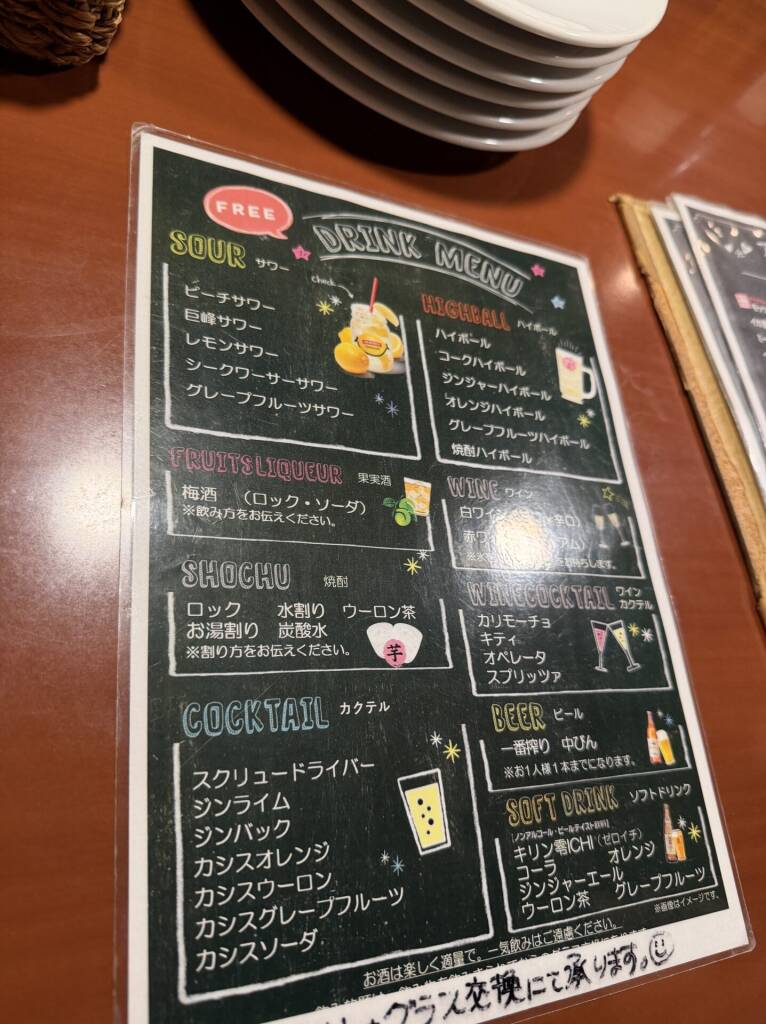 FREE
DRINK MENU
SOUR サワー
check
ピーチサワー
巨峰サワー
レモンサワー
シークワーサーサワー
グレープフルーツサワー
HIGHBALL ハイボール
ハイボール
コークハイボール
ジンジャーハイボール
オレンジハイボール
グレープフルーツハイボール
焼酎ハイボール
FRUITSLIQUEUR 果実酒
梅酒 (ロック・ソーダ)
※飲み方をお伝えください。
WINE ワイン
白ワイン
赤ワ
SHOCHU 焼酎
ロック 水割り ウーロン茶
お湯割り 炭酸水
※割り方をお伝えください。
芋
WINECOCKTAIL ワインカクテル
カリモーチョ
キティ
オペレータ
スプリッツァ
COCKTAIL カクテル
スクリュードライバー
ジンライム
ジンバック
カシスオレンジ
カシスウーロン
カシスグレープフルーツ
カシスソーダ
BEER ビール
一番搾り 中びん
※お1人様1本までになります。
SOFT DRINK ソフトドリンク
[ノンアルコール・ビールテイスト飲料]
キリン零ICHI(ゼロイチ)
コーラ オレンジ
ジンジャーエール
ウーロン茶 グレープフルーツ
※画像はイメージです。
お酒は楽しく適量で。一気飲みはご遠慮ください。
グラス交換にて承ります。